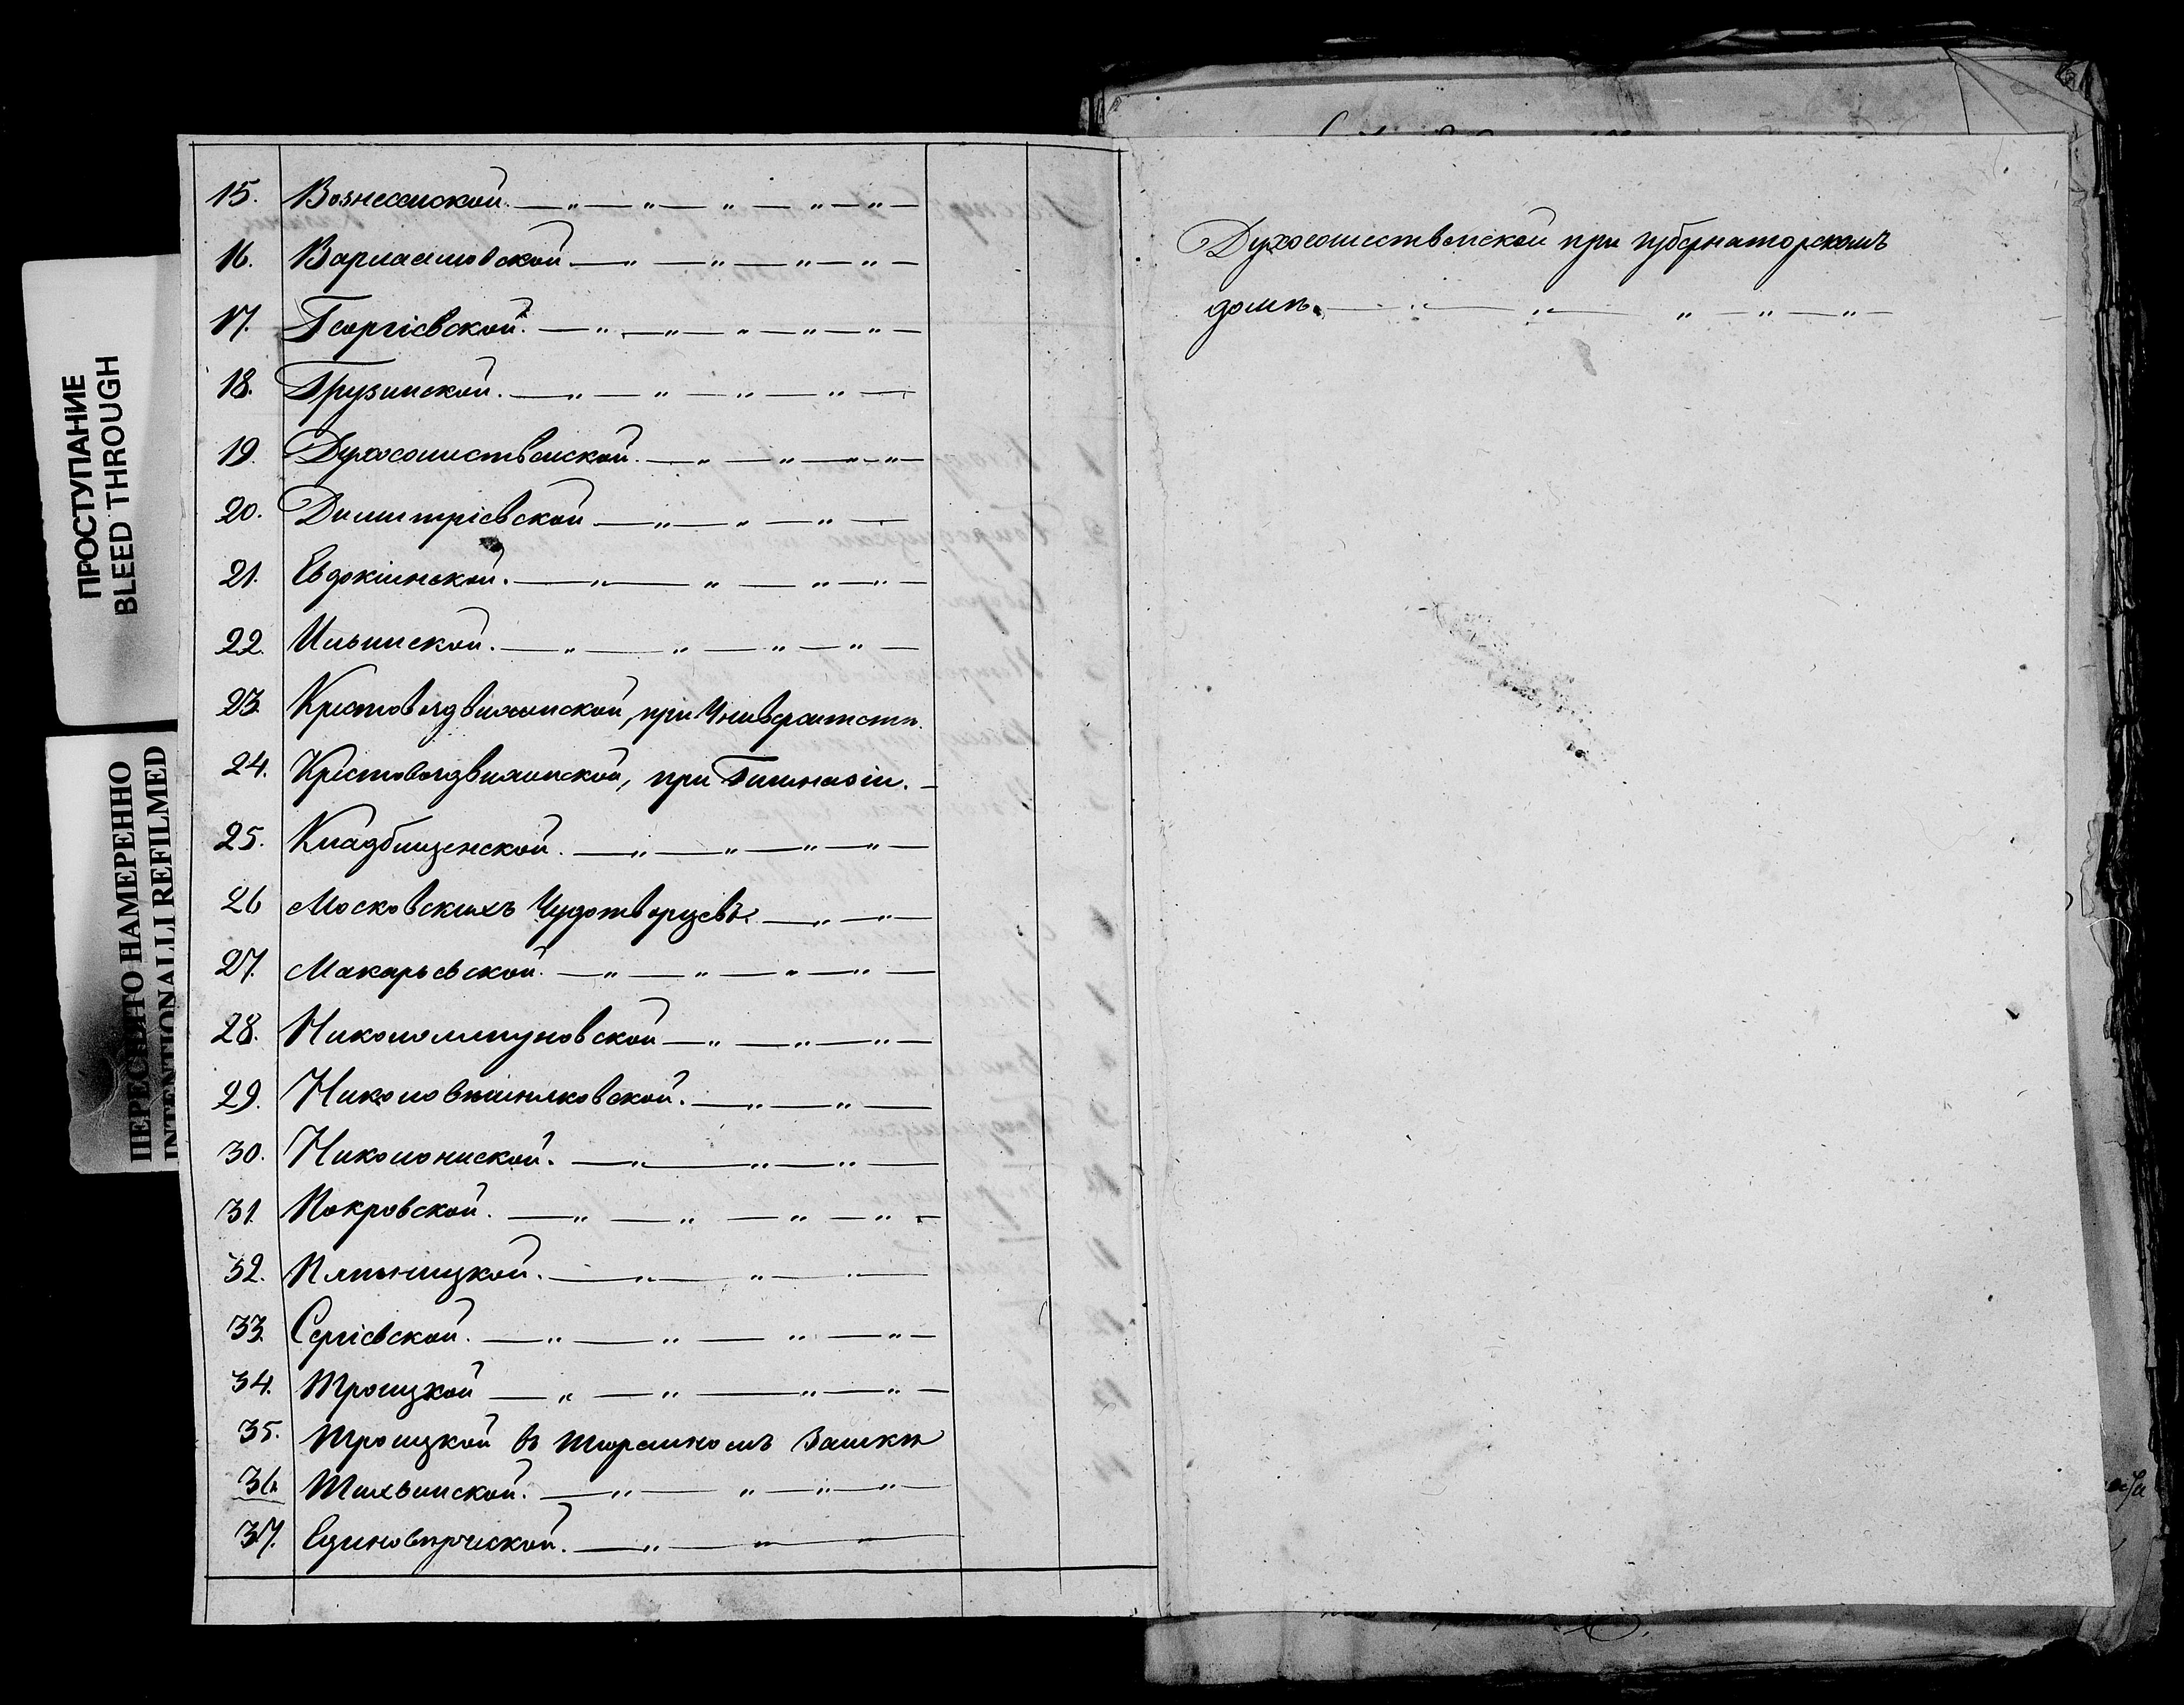 ПРОСТУПАНИЕ
BLEED THROUGH
ПЕРЕСНЯТО НАМЕРЕННО
INTENTIONALLI REFILMED
15. Вознесенской. — „ — „ — „ — „ — „ —
16. Варлаамовской — „ — „ — „ — „ —
17. Георгіевской. — „ — „ — „ — „ — „ —
18. Грузинской. — „ — „ — „ — „ —
19. Духосошественской. — „ — „ — „ — „ —
20. Димитріевской — „ — „ — „ —
21. Евдокіинской. — „ — „ — „ — „ —
22. Ильинской. — „ — „ — „ — „ —
23. Крестовоздвиженской, при Университетѣ.
24. Крестовоздвиженской, при Гимназіи. —
25. Кладбищенской. — „ — „ — „ — „ —
26 Московскихъ Чудотворцевъ. — „ — „ —
27. Макарьевской. — „ — „ — „ — „ —
28. Никололяпуновской — „ — „ — „ —
29. Николовешняковской. — „ — „ —
30. Николонизской. — „ — „ — „ —
31. Покровской. — „ — „ — „ — „ —
32. Пятницкой. — „ — „ — „ —
33. Сергіевской. — „ — „ — „ — „ —
34. Троицкой — „ — „ — „ — „ —
35. Троицкой въ Тюремномъ Замкѣ
36. Тихвинской. — „ — „ — „ — „ —
37. Единовѣрческой. — „ — „ —
Духосошественской при губернаторскомъ
домѣ. — „ — „ — „ — „ — „ —